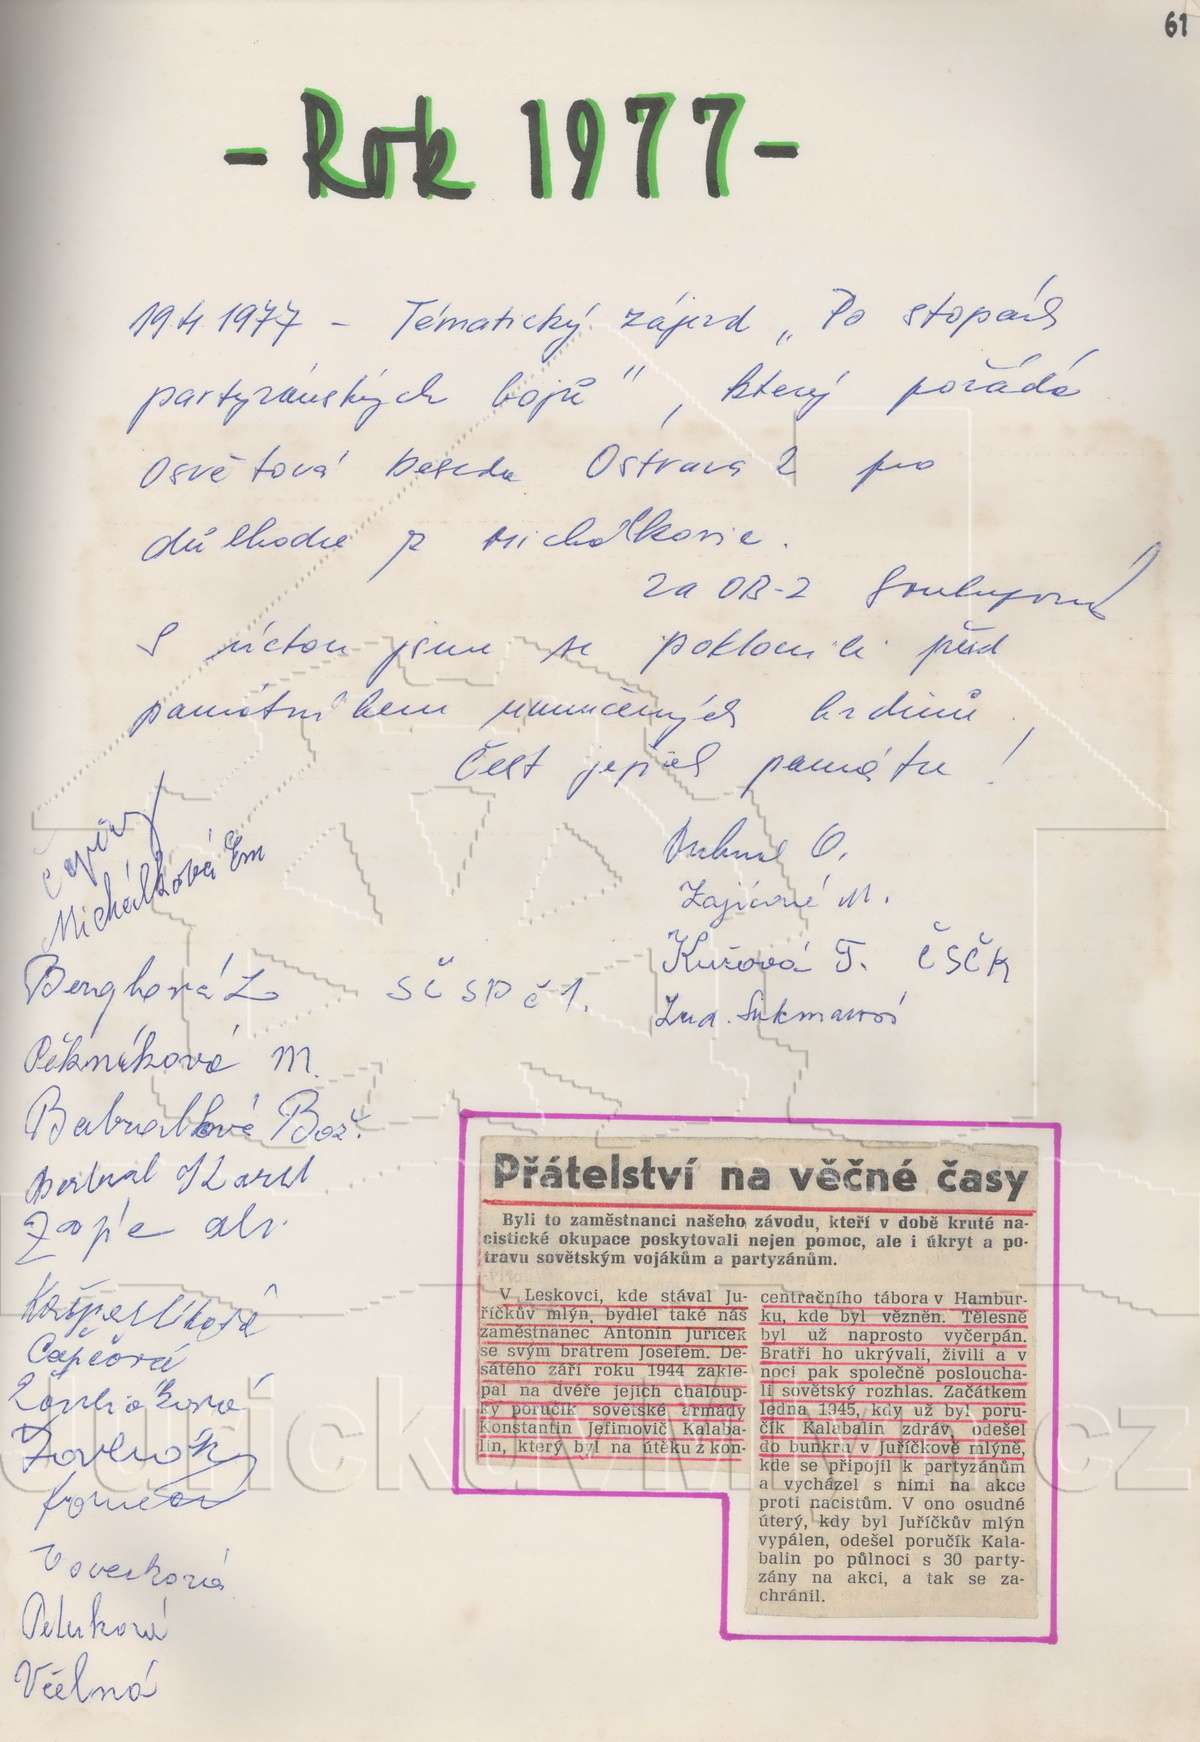 61
- Rok 1977 -
19.4.1977 - Tématický zájezd „Po stopách
partyzánských bojů", který pořádá
Osvětová beseda Ostrava 2 pro
důchodce z Michálkovic.
za OB-2
S úctou jsme se poklonili před
památníkem umučených hrdinů.
Čest jejich památce!
Michálková Em
O.
Zajícová M.
Kuřová T. ČSČK
Lud.
L
SČSP č 1.
Pěkníková M.
Božˇ.
Karel
Kašperlíková
Čapčová
Včelná
Přátelství na věčné časy
Byli to zaměstnanci našeho závodu, kteří v době kruté na-
cistické okupace poskytovali nejen pomoc, ale i úkryt a po-
travu sovětským vojákům a partyzánům.
V Leskovci, kde stával Ju-
říčkův mlýn, bydlel také náš
zaměstnanec Antonín Juříček
se svým bratrem Josefem. De-
sátého září roku 1944 zakle-
pal na dvéře jejich chaloup-
ky poručík sovětské armády
Konstantin Jefimovič Kalaba-
lin, který byl na útěku z kon-
centračního tábora v Hambur-
ku, kde byl vězněn. Tělesně
byl už naprosto vyčerpán.
Bratři ho ukrývali, živili a v
noci pak společně posloucha-
li sovětský rozhlas. Začátkem
ledna 1945, kdy už byl poru-
čík Kalabalin zdráv, odešel
do bunkru v Juříčkově mlýně,
kde se připojil k partyzánům
a vycházel s nimi na akce
proti nacistům. V ono osudné
úterý, kdy byl Juříčkův mlýn
vypálen, odešel poručík Kala-
balin po půlnoci s 30 party-
zány na akci, a tak se za-
chránil.
JurickuvMlyn.cz